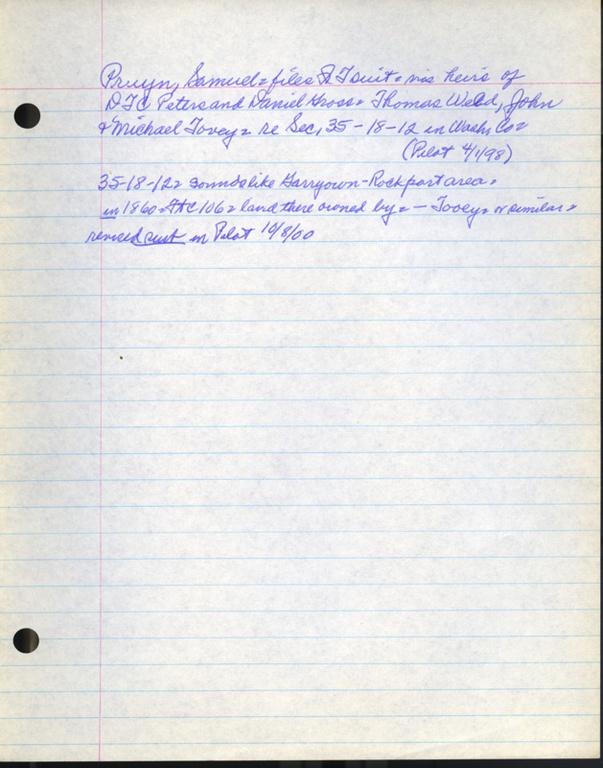 Pruyn, Samuel = files QT suit = vis heirs of
DTC Peters and Daniel Gross = Thomas Weld, John
& Michael Tovey = re Sec, 35-18-12 in Wash, Co =
(Pilot 4/1/98)
35-18-12 = sounds like Garryown-Rockport area =
in 1860 = C 106 = land there owned by = - Tovey = or similar =
revised suit in Pilot 10/8/00